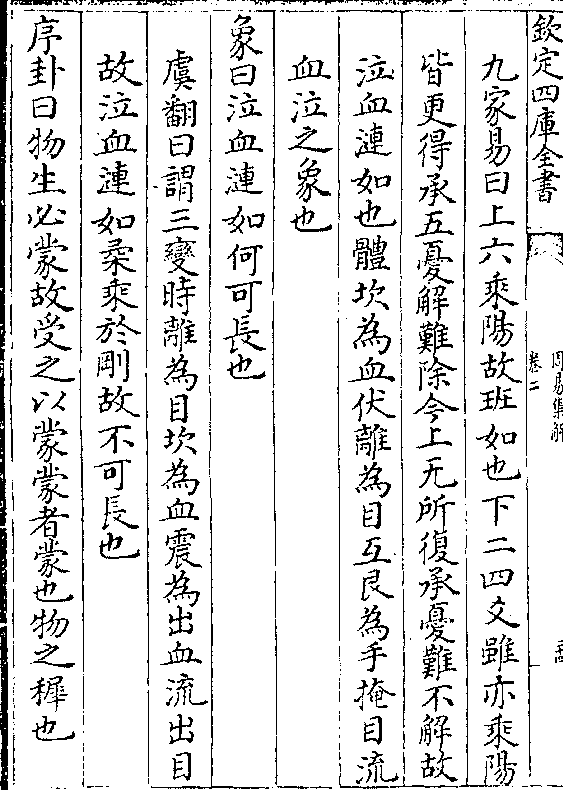 欽定四庫全書
周易集解
卷二
九家易曰上六乘陽故班如也下二四爻雖亦乘陽
皆更得承五憂解難除今上无所復承憂難不解故
泣血漣如也體坎為血伏離為目互艮為手掩目流
血泣之象也
象曰泣血漣如何可長也
虞翻曰謂三變時離為目坎為血震為出血流出目
故泣血漣如柔乘於剛故不可長也
序卦曰物生必蒙故受之以蒙蒙者蒙也物之穉也